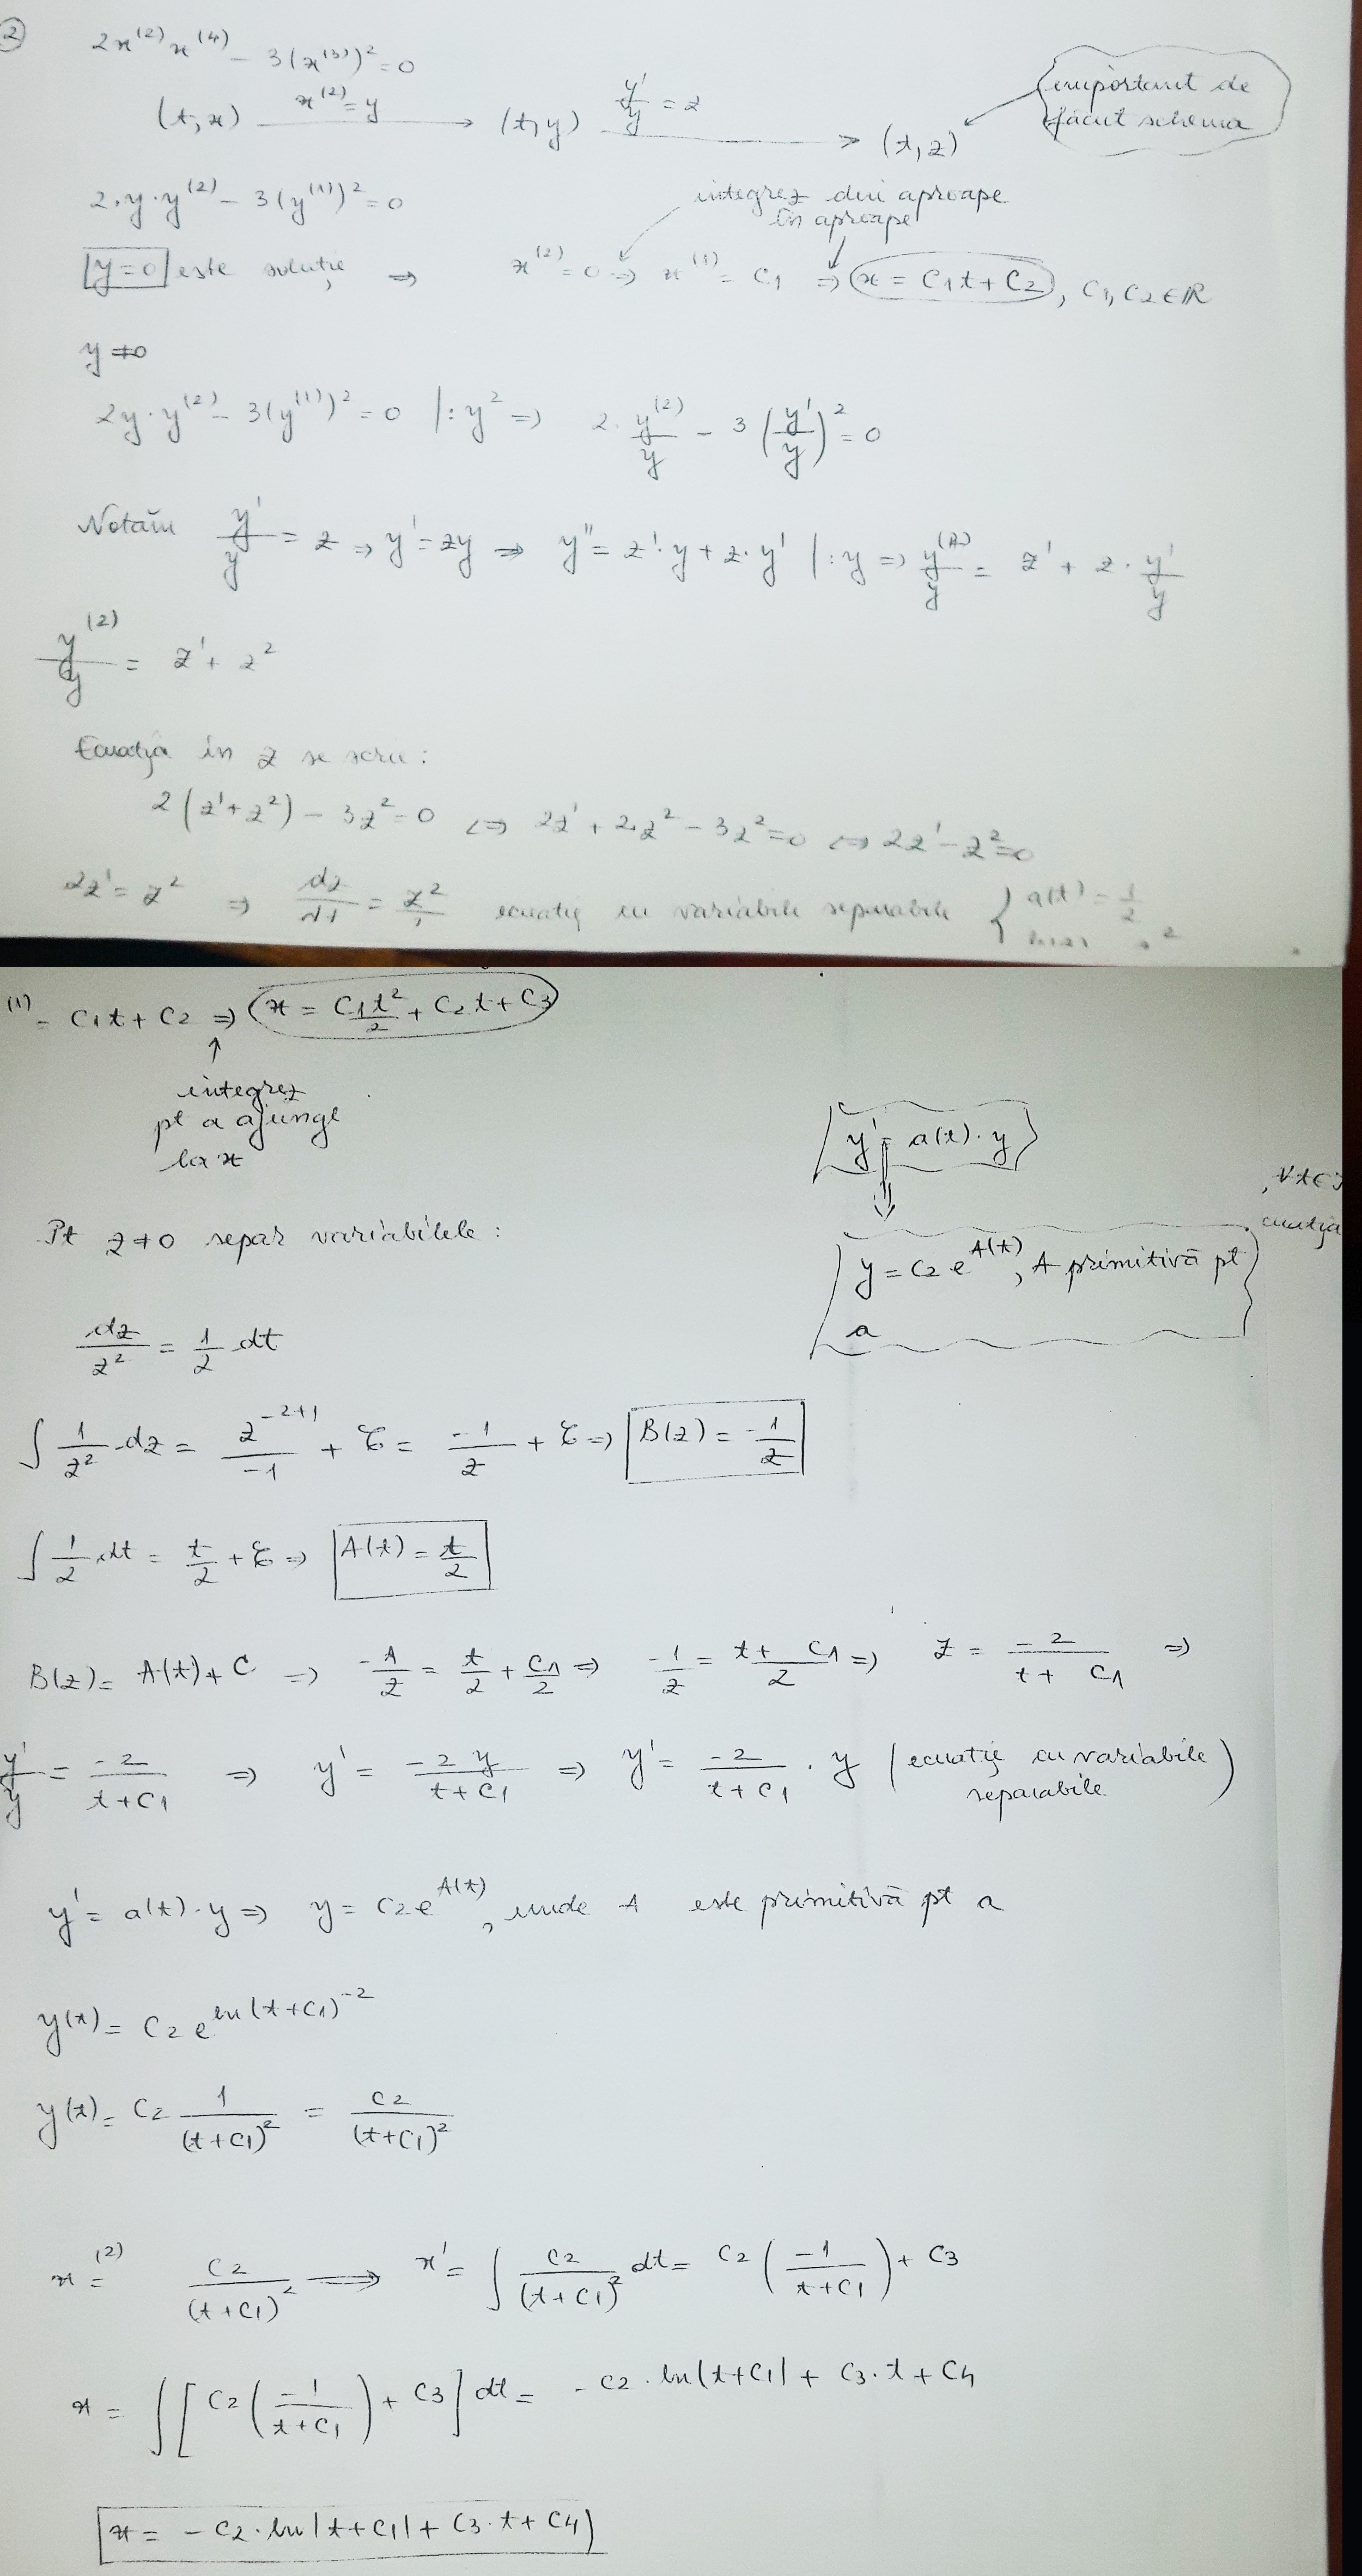 2
2x^(2) x^(4) - 3(x^(3))^2 = 0
(t,x) —x^(2)=y→ (t,y) —y'/y = z→ (t,z)
important de
făcut schema
2·y·y^(2) - 3(y^(1))^2 = 0
integrez din aproape
în aproape
y=0 este soluție => x^(2) = 0 => x^(1) = C1 => x = C1t + C2, C1, C2 ∈ R
y ≠ 0
2y·y^(2) - 3(y^(1))^2 = 0 |: y^2 => 2· y^(2)/y - 3 (y'/y)^2 = 0
Notăm y'/y = z => y' = zy => y'' = z'·y + z·y' |: y => y^(2)/y = z' + z· y'/y
y^(2)/y = z' + z^2
Ecuația în z se scrie:
2(z' + z^2) - 3z^2 = 0 <=> 2z' + 2z^2 - 3z^2 = 0 <=> 2z' - z^2 = 0
2z' = z^2 => dz/dt = z^2/ ecuație cu variabile separabile { a(t) = 1/2
(1) = C1t + C2 => x = C1t^2/2 + C2t + C3
integrez
pt a ajunge
la x
y' = a(t)·y
, ∀t∈I
ecuația
y = C2 e^A(t), A primitivă pt
a
Pt z ≠ 0 separ variabilele:
dz/z^2 = 1/2 dt
∫ 1/z^2 dz = z^(-2+1)/-1 + C = -1/z + C => B(z) = -1/z
∫ 1/2 dt = t/2 + C => A(t) = t/2
B(z) = A(t) + C => -1/z = t/2 + C1/2 => -1/z = (t + C1)/2 => z = -2/(t + C1) =>
y'/y = -2/(t+C1) => y' = -2y/(t+C1) => y' = -2/(t+C1) · y (ecuație cu variabile
separabile)
y' = a(t)·y => y = C2 e^A(t), unde A este primitivă pt a
y(t) = C2 e^ln(t+C1)^-2
y(t) = C2 1/(t+C1)^2 = C2/(t+C1)^2
x^(2) = C2/(t+C1)^2 => x' = ∫ C2/(t+C1)^2 dt = C2 (-1/(t+C1)) + C3
x = ∫ [C2 (-1/(t+C1)) + C3] dt = - C2·ln|t+C1| + C3·t + C4
x = - C2·ln|t+C1| + C3·t + C4